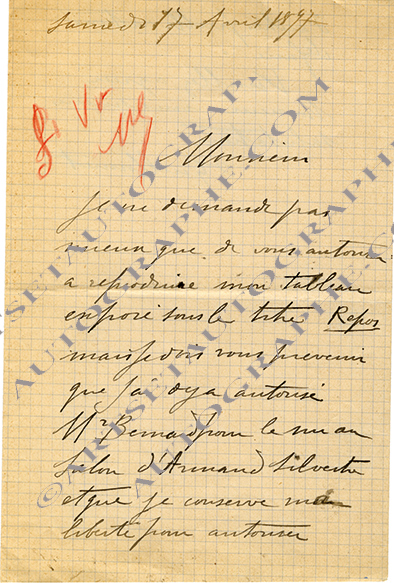 Samedi 17 Avril 1897
Monsieur
Je ne demande pas
mieux que de vous autoriser
a reproduire mon tableau
exposé sous le titre Repos
mais je dois vous prevenir
que j'ai deja autorisé
Mr Bernard pour le nu au
Salon d'Armand Silvestre
et que je conserve ma
liberté pour autoriser
©ARTSETAUTOGRAPHE.COM